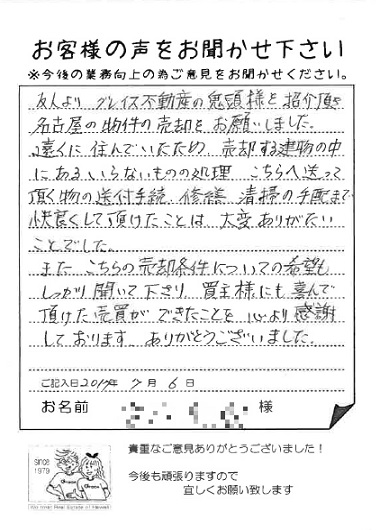 お客様の声をお聞かせ下さい
※今後の業務向上の為ご意見をお聞かせください。
友人より グレイス不動産の鬼頭様を紹介頂き
名古屋の物件の売却をお願いしました。
遠くに住んでいたため 売却する建物の中
にあるいらないものの処理 こちらへ送って
頂く物の送付手続、修繕 清掃の手配まで
快良くして頂けたことは 大変ありがたい
ことでした。
また こちらの売却条件についての希望も
しっかり聞いて下さり 買主様にも喜んで
頂けた売買ができたことを 心より感謝
しております ありがとうございました。
ご記入日2017年 7月 6日
お名前 様
since
1979
貴重なご意見ありがとうございました！
今後も頑張りますので
宜しくお願い致します